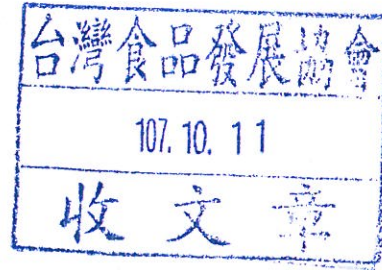 台灣食品發展協會
107.10.11
收文章